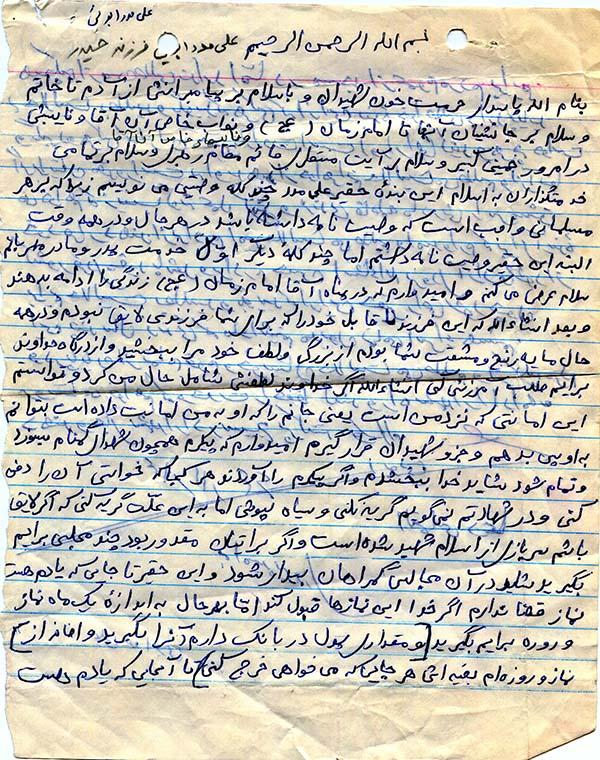 بسم الله الرحمن الرحیم علی مدد فرزند حیدر
بنام الله پاسدار حرمت خون شهیدان و با سلام بر پیامبرانش از آدم تا خاتم
و سلام بر جانشینان آنها تا امام زمان (عج) و نواب خاص آن آقا و نایبش
در امروز خمینی کبیر و سلام بر آیت منتظری قائم مقام رهبری و سلام بر تمامی
خدمتگزاران به اسلام این بندهٔ حقیر علی مدد چند کلمه وصیتی می نویسم زیرا که بر هر
مسلمانی واجب است که وصیت نامه داشته باشد در هر حال و در همه وقت
البته این حقیر وصیت نامه داشتم اما چند کلمهٔ دیگر اول خدمت پدر و مادر مهربانم
سلام عرض می کنم و امیدوارم که در پناه آقا امام زمان (عج) زندگی را ادامه بدهند
و بعد انشاءالله که این فرزند قابل خود را که برای شما فرزندی لایق نبودم و در همه
حال مایه رنج و مشقت شما بودم از بزرگی و لطف خود مرا ببخشید و از درگاه خداوند
برایم طلب آمرزش کنی انشاءالله اگر خداوند لطفش شامل حال من کرد و توانستم
این امانتی که نزد من است یعنی جانم را که او به من امانت داده است بتوانم
به او پس بدهم و جزو شهیدان قرار گیرم امیدوارم که پیکرم همچون شهدای گمنام
و تمام شود شاید خدا ببخشدم و اگر پیکرم را آوردند هر کجا که خواستی آن را دفن
کنی و در شهادتم نمی گویم گریه نکنی و سیاه نپوشی اما به این علت گریه کنی که اگر لایق
باشم سربازی از اسلام شهید شده است و اگر برایتان مقدور بود چند مجلسی برایم
بگیرید شاید در آن مجالس گمراهان بیدار شود و این حقیر تا جایی که یادم هست
نماز قضا ندارم اگر خدا این نمازها قبول کند اما بهر حال به اندازهٔ یک ماه نماز
و روزه برایم بگیرید و مقداری پول در بانک دارم آن را بگیرید و اما از
نماز و روزه ام بقیه اش هر جایی که می خواهی خرج کنی تا آنجایی که یادم هست